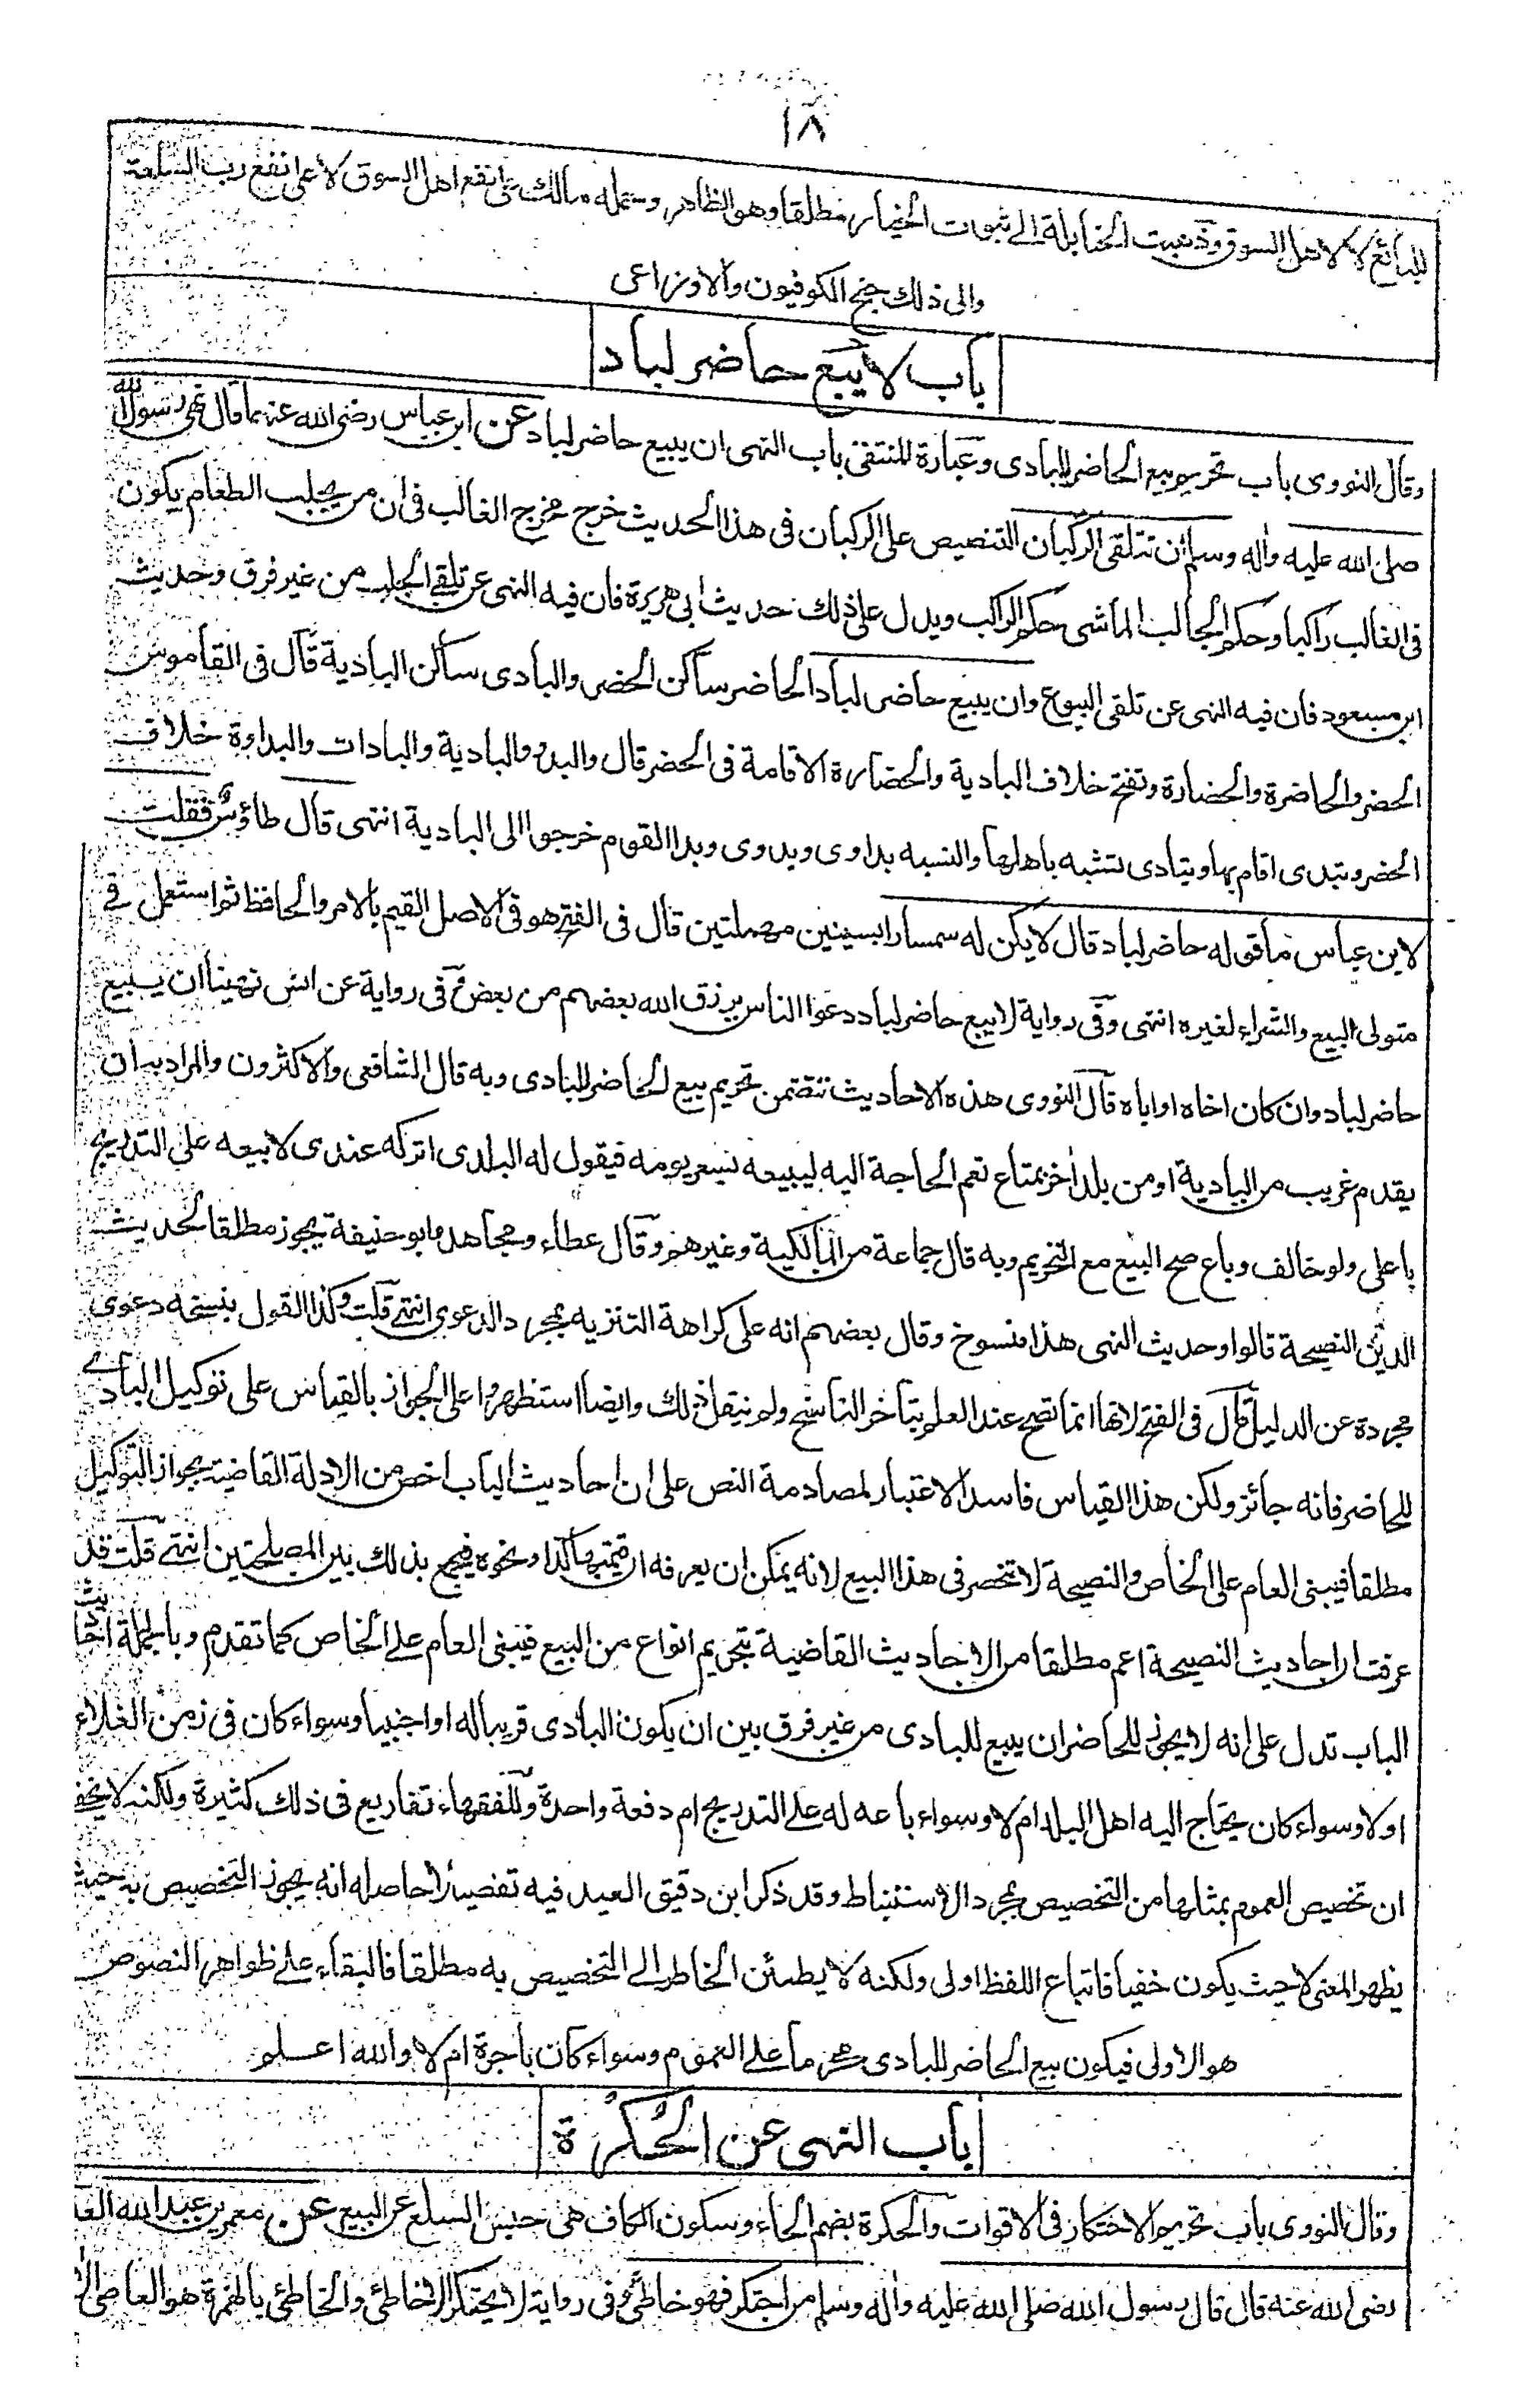 ١٨
للبائع لا لاهل السوق وذهبت الحنابلة الى ثبوت الخيار مطلقا وهو الظاهر وحمله مالك على نفع اهل السوق لا على نفع رب السلعة
والى ذلك جنح الكوفيون والاوزاعى
باب لا يبع حاضر لباد
وقال النووى باب تحريم بيع الحاضر للبادى وعبارة المنتقى باب النهى ان يبيع حاضر لباد عن ابن عباس رضى الله عنهما قال نهى رسول الله
صلى الله عليه واله وسلم ان تتلقى الركبان التنصيص على الركبان فى هذا الحديث خرج مخرج الغالب فى ان من يجلب الطعام يكون
فى الغالب راكبا وحكم الجالب الماشى حكم الراكب ويدل على ذلك حديث ابى هريرة فان فيه النهى عن تلقى الجلب من غير فرق وحديث
ابن مسعود فان فيه النهى عن تلقى البيوع وان يبيع حاضر لباد الحاضر ساكن الحضر والبادى ساكن البادية قال فى القاموس
الحضر والحاضرة والحضارة وتفتح خلاف البادية والحضارة الاقامة فى الحضر قال والبدو والبادية والبادات والبداوة خلاف
الحضر وتبدى اقام بها وتبادى تشبه باهلها والنسبه بداوى وبدوى وبدا القوم خرجوا الى البادية انتهى قال طاؤس فقلت
لابن عباس ما قوله حاضر لباد قال لا يكن له سمسارا بسينين مهملتين قال فى الفتح هو فى الاصل القيم بالامر والحافظ ثم استعمل فى
متولى البيع والشراء لغيره انتهى وفى رواية لا يبيع حاضر لباد دعوا الناس يرزق الله بعضهم من بعض وفى رواية عن انس نهينا ان يبيع
حاضر لباد وان كان اخاه او اباه قال النووى هذه الاحاديث تتضمن تحريم بيع الحاضر للبادى وبه قال الشافعى والاكثرون والمراد به ان
يقدم غريب من البادية او من بلد اخر بمتاع تعم الحاجة اليه ليبيعه بسعر يومه فيقول له البلدى اتركه عندى لابيعه على التدريج
باعلى ولو خالف وباع صح البيع مع التحريم وبه قال جماعة من المالكية وغيرهم وقال عطاء ومجاهد وابو حنيفة يجوز مطلقا لحديث
الدين النصيحة قالوا وحديث النهى هذا منسوخ وقال بعضهم انه على كراهة التنزيه بمجرد الدعوى انتهى قلت وكذا القول بنسخه دعوى
مجردة عن الدليل قال فى الفتح لانها انما تصح عند العلم بتاخر الناسخ ولم ينقل ذلك وايضا استظهروا على الجواز بالقياس على توكيل البادى
للحاضر فانه جائز ولكن هذا القياس فاسد الاعتبار لمصادمة النص على ان احاديث الباب اخص من الادلة القاضية بجواز التوكيل
مطلقا فيبنى العام على الخاص والنصيحة لا تنحصر فى هذا البيع لانه يمكن ان يعرفه ان قيمتها كذا ونحوه فيجمع بذلك بين المصلحتين انتهى قلت قد
عرفت ان احاديث النصيحة اعم مطلقا من الاحاديث القاضية بتحريم انواع من البيع فيبنى العام على الخاص كما تقدم وبالجملة احاديث
الباب تدل على انه لا يجوز للحاضر ان يبيع للبادى من غير فرق بين ان يكون البادى قريبا له او اجنبيا وسواء كان فى زمن الغلاء
او لا وسواء كان يحتاج اليه اهل البلد ام لا وسواء باعه له على التدريج ام دفعة واحدة وللفقهاء تفاريع فى ذلك كثيرة ولكنه لا يخفى
ان تخصيص العموم بمثلها من التخصيص بمجرد الاستنباط وقد ذكر ابن دقيق العيد فيه تفصيلا حاصله انه يجوز التخصيص به حيث
يظهر المعنى لا حيث يكون خفيا فاتباع اللفظ اولى ولكنه لا يطمئن الخاطر الى التخصيص به مطلقا فالبقاء على ظواهر النصوص
هو الاولى فيكون بيع الحاضر للبادى محرما على العموم وسواء كان باجرة ام لا والله اعلم
باب النهى عن الحُكْرة
وقال النووى باب تحريم الاحتكار فى الاقوات والحكرة بضم الحاء وسكون الكاف هى حبس السلع عن البيع عن معمر بن عبد الله
رضى الله عنه قال قال رسول الله صلى الله عليه واله وسلم من احتكر فهو خاطئ وفى رواية لا يحتكر الا خاطئ والخاطئ بالهمزة هو العاصى